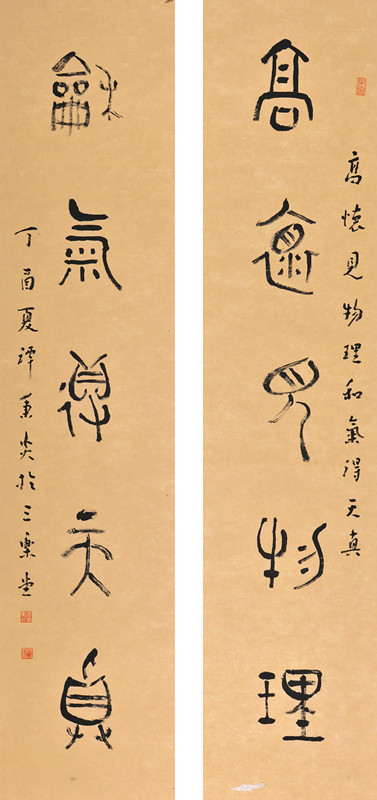 高懷見物理
高懷見物理和氣得天真
龢氣得天真
丁酉夏譚秉炎於三樂堂